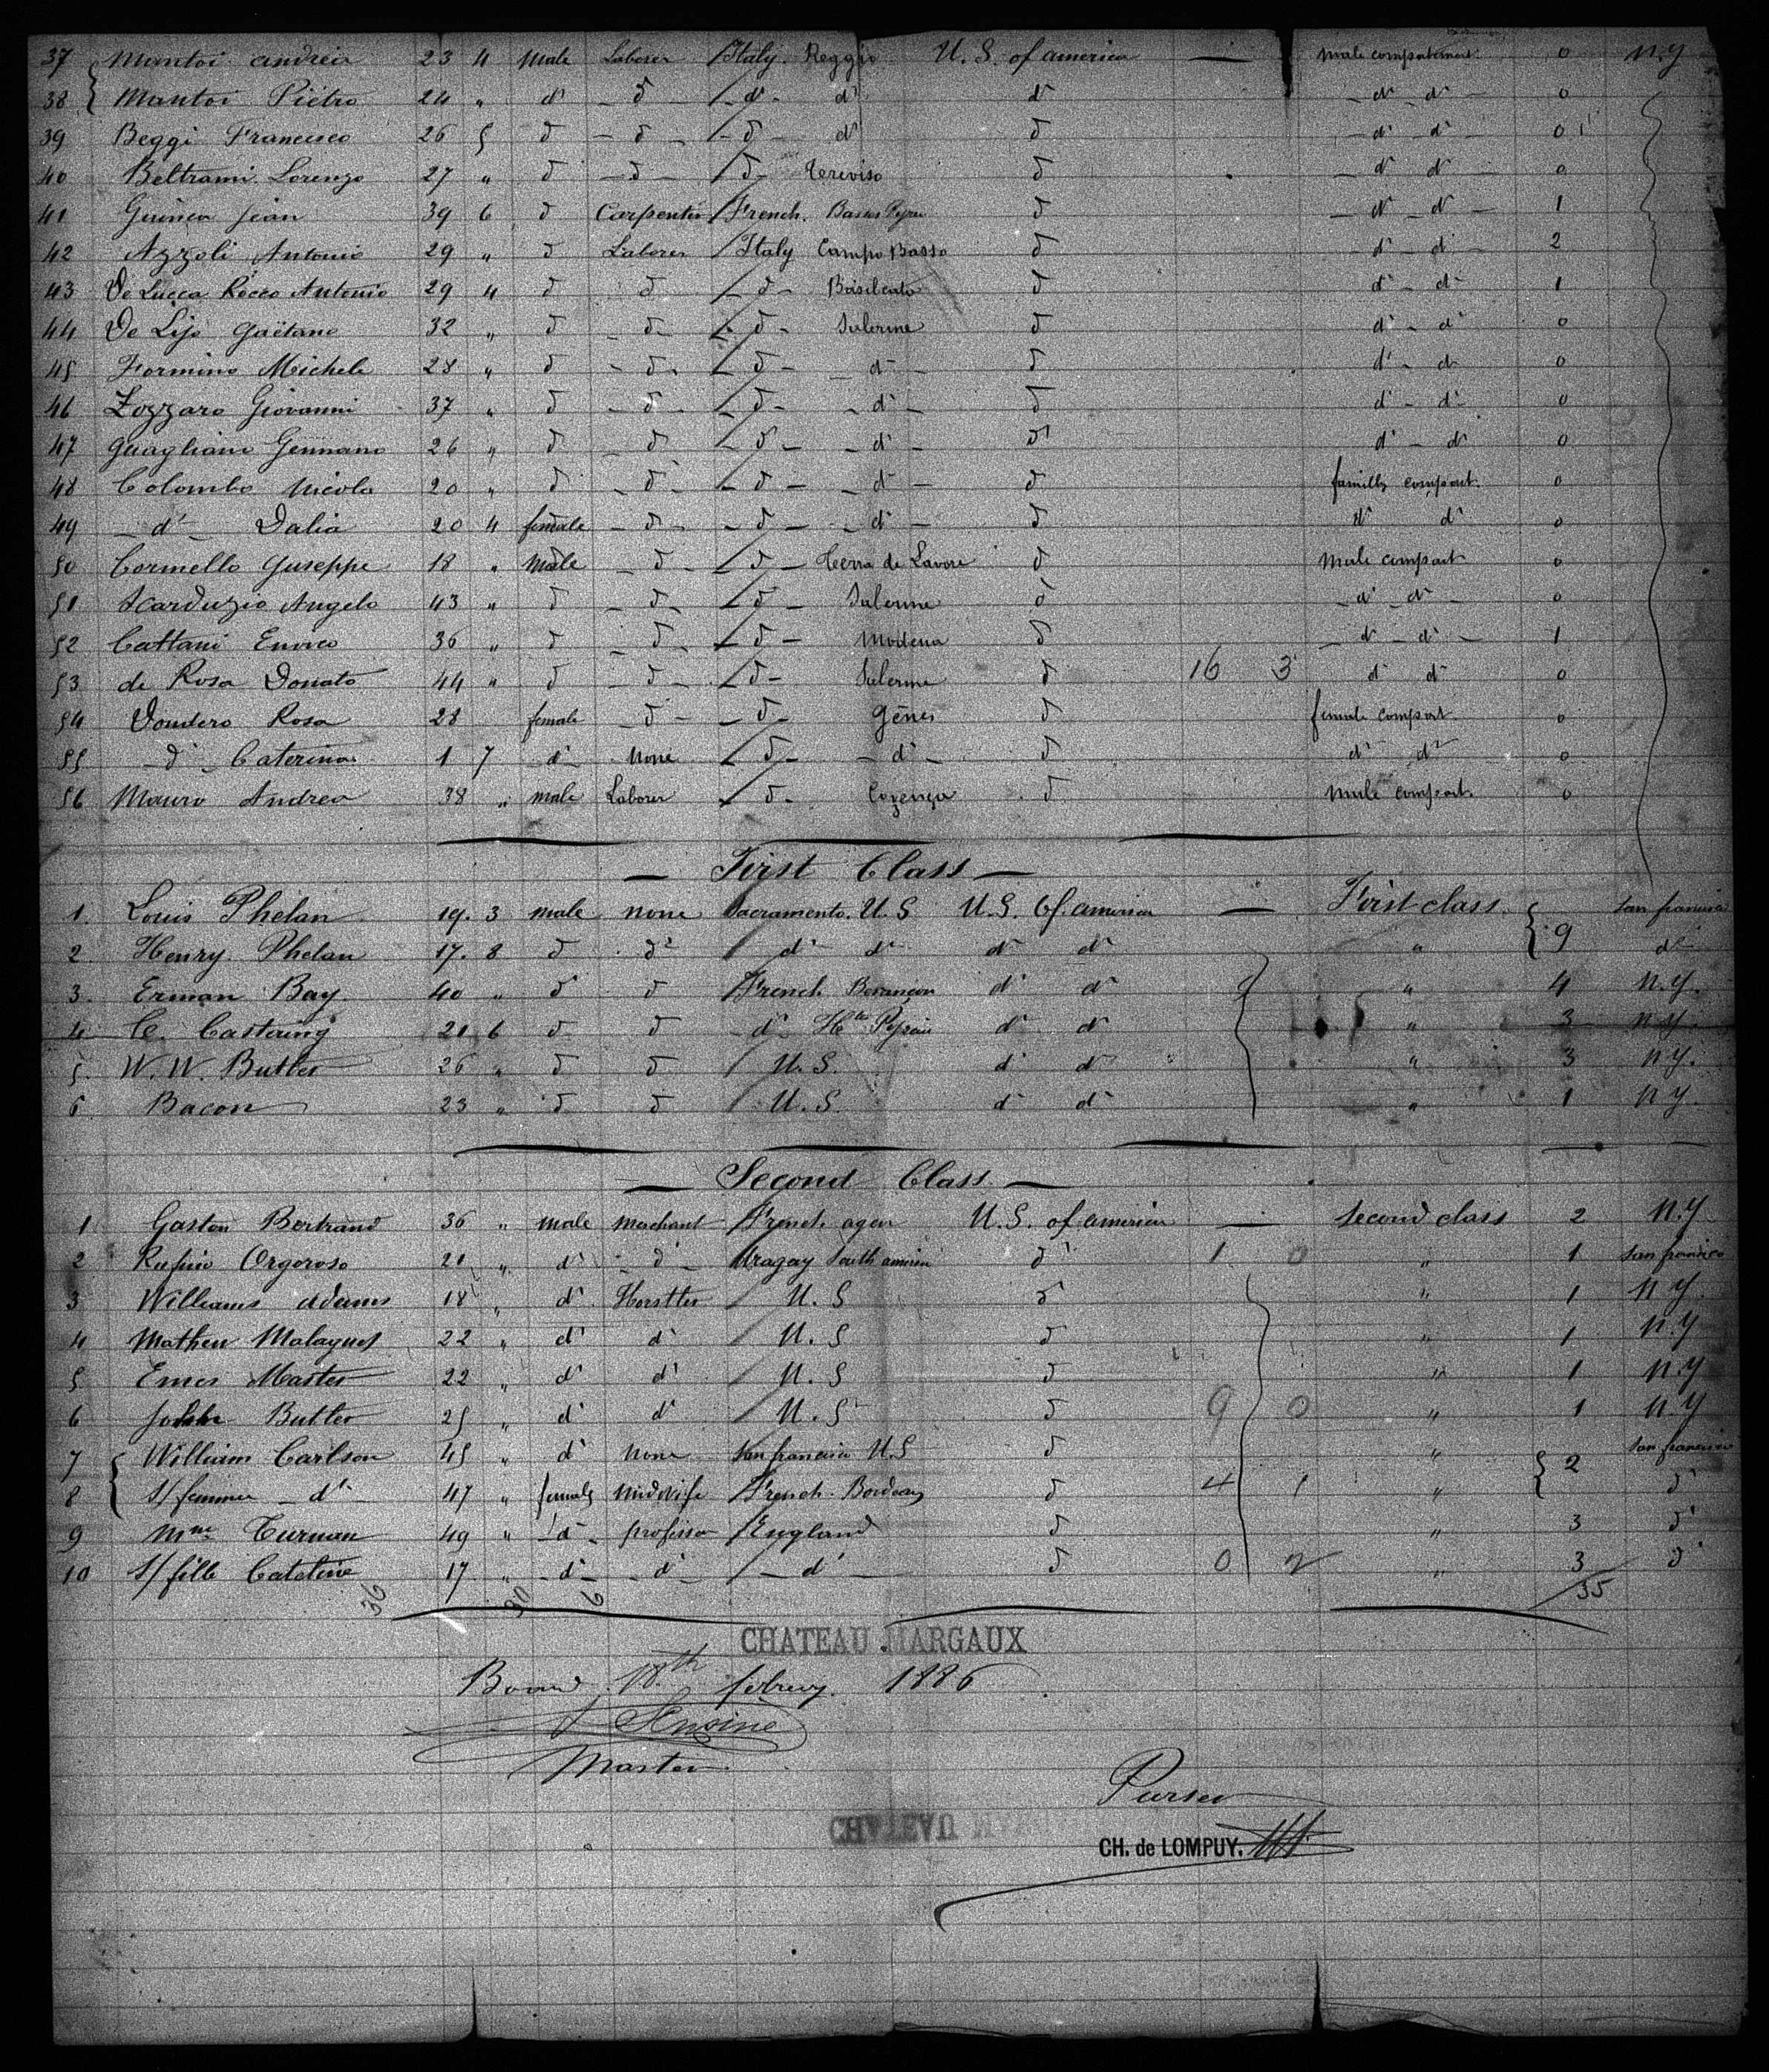 37 Mantoi andrea 23 4 Male Laborer Italy Reggio U. S. of america — male compartment 0 N.Y
38 Mantoi Pietro 24 " d° d° d° d° d° d° d° 0
39 Beggi Francesco 26 5 d° d° d° d° d° d° d° 0
40 Beltrami Lorenzo 27 " d° d° d° Treviso d° d° d° 0
41 Guinea Jean 39 6 d° Carpenter French. Basses Pyre d° d° d° 1
42 Azzoli Antonio 29 " d° Laborer Italy Campo Basso d° d° d° 2
43 De Lucca Rocco Antonio 29 4 d° d° d° Basilicata d° d° d° 1
44 De Lijo Gaëtano 32 " d° d° d° Salerme d° d° d° 0
45 Formino Michele 28 " d° d° d° d° d° d° d° 0
46 Zozzaro Giovanni 37 " d° d° d° d° d° d° d° 0
47 Guagliano Gennaro 26 " d° d° d° d° d° d° d° 0
48 Colombo Nicola 20 " d° d° d° d° d° familly compart. 0
49 d° Dalia 20 4 female d° d° d° d° d° d° 0
50 Cormello Guseppe 18 " Male d° d° Terra de Lavore d° Male compart 0
51 Scarduzio Angelo 43 " d° d° d° Salerme d° d° d° 0
52 Cattani Enrico 36 " d° d° d° Modena d° d° d° 1
53 de Rosa Donato 44 " d° d° d° Salerme d° 16 3 d° d° 0
54 Dondero Rosa 28 female d° d° Gênes d° female compart. 0
55 d° Caterina 1 7 d° None d° d° d° d° d° 0
56 Mauro Andrea 38 " male Laborer d° Cozenza d° Male compart. 0
— First Class —
1. Louis Phelan 19. 3 male none Sacramento. U. S U. S. Of. america — First class. 9 San francisco
2. Henry Phelan 17. 8 d° d° d° d° d° d° " d°
3. Erman Bay 40 " d° d° French Besançon d° d° " 4 N.Y.
4 C. Castaing 21 6 d° d° d° Htes Pyrén d° d° " 3 N.Y.
5. W. W. Butler 26 " d° d° U. S. d° d° " 3 N.Y.
6 Bacon 23 " d° d° U. S. d° d° " 1 N.Y.
— Second Class —
1 Gaston Bertrand 36 " male machant French. agen U. S. of america — Second class 2 N.Y
2 Rufino Orgoroso 21 " d° d° Uragay South america d° 1 0 " 1 San francisco
3 Williams adams 18 " d° Horstler U. S d° " 1 N.Y.
4 Mathew Malagnes 22 " d° d° U. S d° " 1 N.Y
5 Emes Master 22 " d° d° U. S d° " 1 N.Y
6 John Butler 25 " d° d° U. S d° 9 0 " 1 N.Y
7 William Carlson 45 " d° none San francisco U. S d° " 2 San francisco
8 S/femme d° 47 " female Midwife French. Bordeaux d° 4 1 " d°
9 Mme Curnan 49 " d° professor England d° " 3 d°
10 S/fille Cateline 17 " d° d° d° d° 0 2 " 3 d°
36 30 6 35
CHATEAU MARGAUX
Board 18th febrary. 1886
Sensine
Master.
Purser
CHATEAU MAR
CH. de LOMPUY.